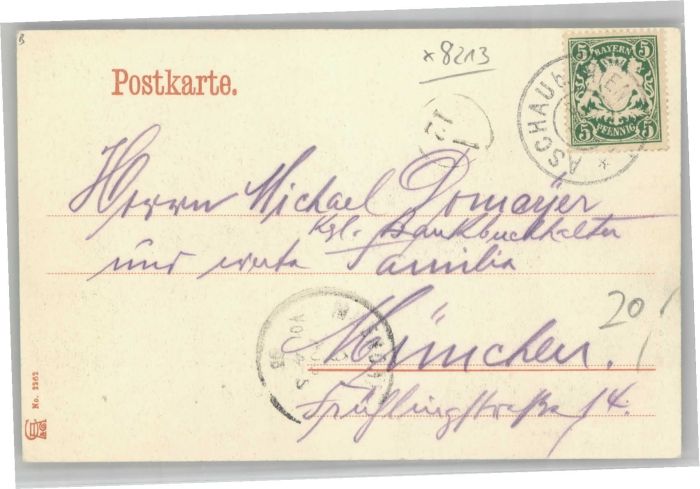 *8213
Postkarte.
5 BAYERN 5
5 PFENNIG 5
ASCHAU
12
1
Herrn Michael Domayer
Kgl. Bankbuchhalter
und werte Familie
München.
20
Frühlingstraße 14.
No. 2262